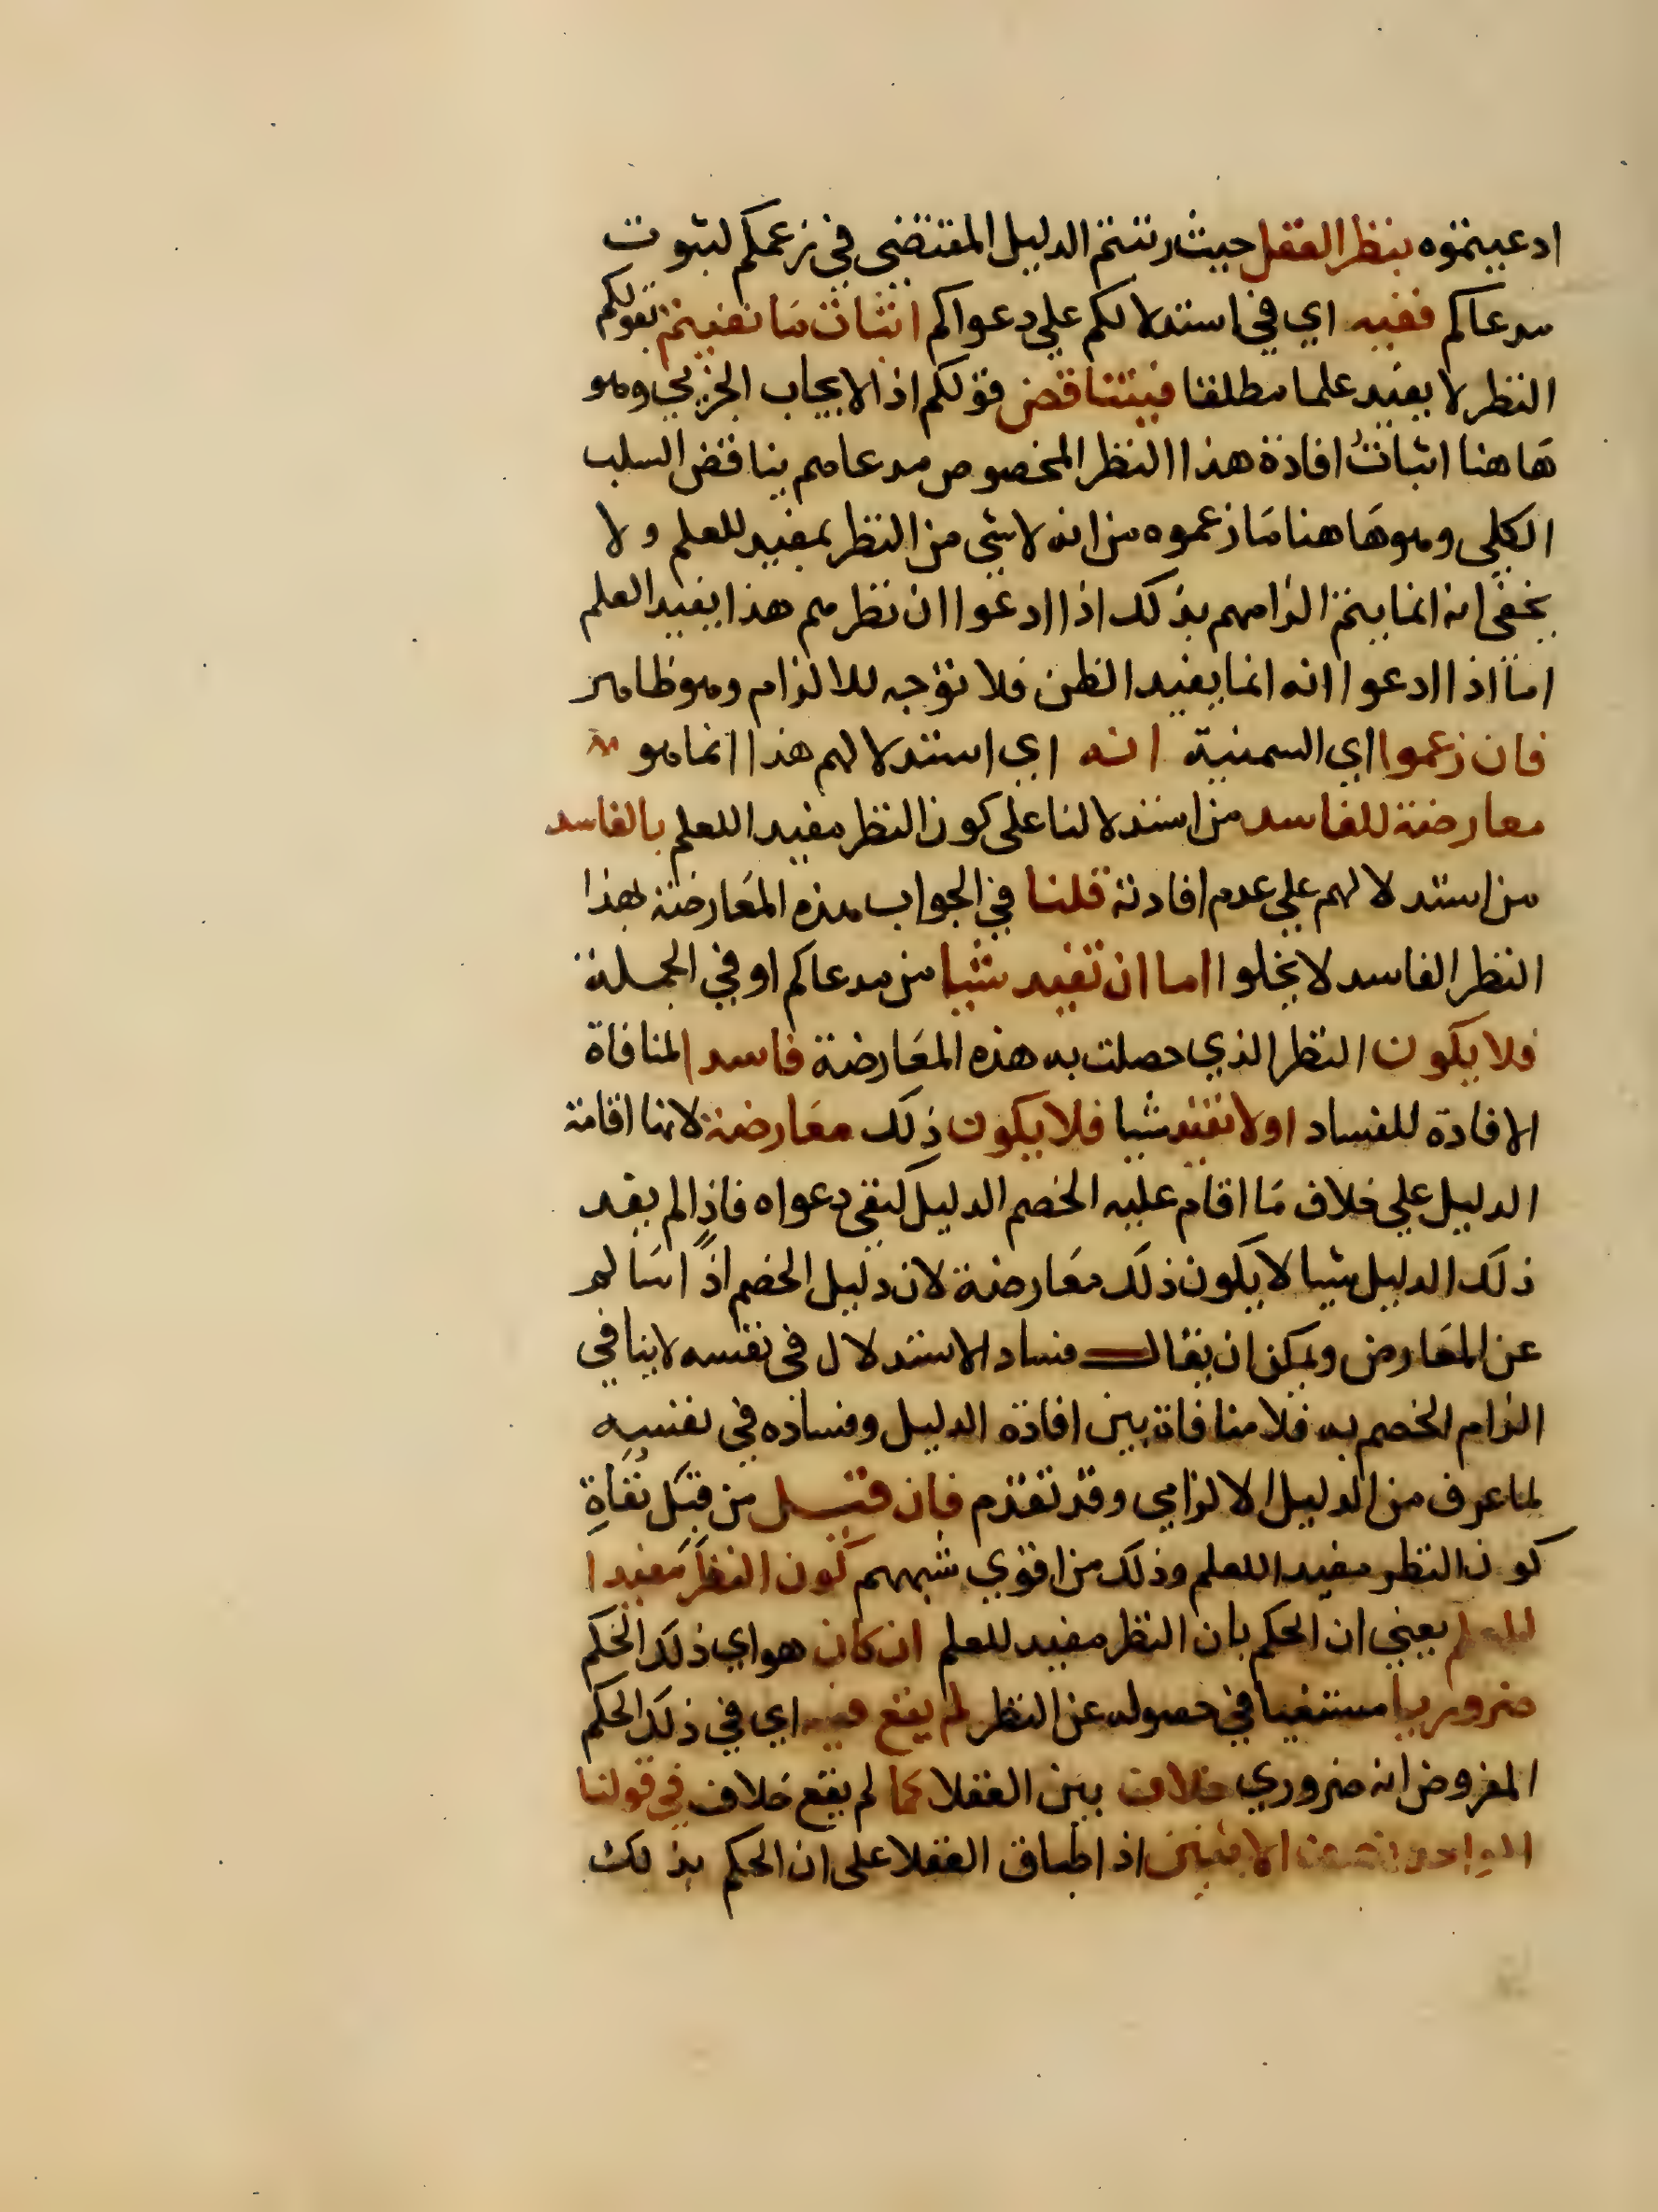 ادعيتموه بنظر العقل حيث رتبتم الدليل المقتضي في زعمكم لثبوت
مدعاكم ففيه اي في استدلالكم علي دعواكم اثبات ما نفيتم بقولكم
النظر لا يفيد علما مطلقا فيتناقض قولكم اذ الايجاب الجزيي وهو
هاهنا اثبات افادة هذا النظر المخصوص مدعاهم يناقض السلب
الكلي وهو هاهنا ما زعموه من انه لا شي من النظر بمفيد للعلم ولا
يخفى انه انما يتم الزامهم بذلك اذا ادعوا ان نظرهم هذا يفيد العلم
اما اذا ادعوا انه انما يفيد الظن فلا توجه للالزام وهو ظاهر
فان زعموا اي السمنية انه اي استدلالهم هذا انما هو
معارضة للفاسد من استدلالنا على كون النظر مفيدا للعلم بالفاسد
من استدلالهم علي عدم افادته قلنا في الجواب هذه المعارضة بهذا
النظر الفاسد لا يخلوا اما ان تفيد شيا من مدعاكم او في الجملة
فلا يكون النظر الذي حصلت به هذه المعارضة فاسدا لمنافاة
الافادة للفساد او لا تفيد شيا فلا يكون ذلك معارضة لانها اقامة
الدليل علي خلاف ما اقام عليه الخصم الدليل لنفي دعواه فاذا لم يفد
ذلك الدليل شيا لا يكون ذلك معارضة لان دليل الخصم اذا سالم
عن المعارض ويمكن ان يقال فساد الاستدلال في نفسه لا ينافي
الزام الخصم به فلا منافاة بين افادة الدليل وفساده في نفسه
لما عرف من الدليل الالزامي وقد تقدم فان قيل من قبل نفاة
كون النظر مفيدا للعلم وذلك من اقوي شبههم كون النظر مفيدا
للعلم يعني ان الحكم بان النظر مفيد للعلم ان كان هو اي ذلك الحكم
ضروريا مستغنيا في حصوله عن النظر لم يقع فيه اي في ذلك الحكم
المفروض انه ضروري خلاف بين العقلا كما لم يقع خلاف في قولنا
الواحد نصف الاثنين اذ اطباق العقلا على ان الحكم بذلك